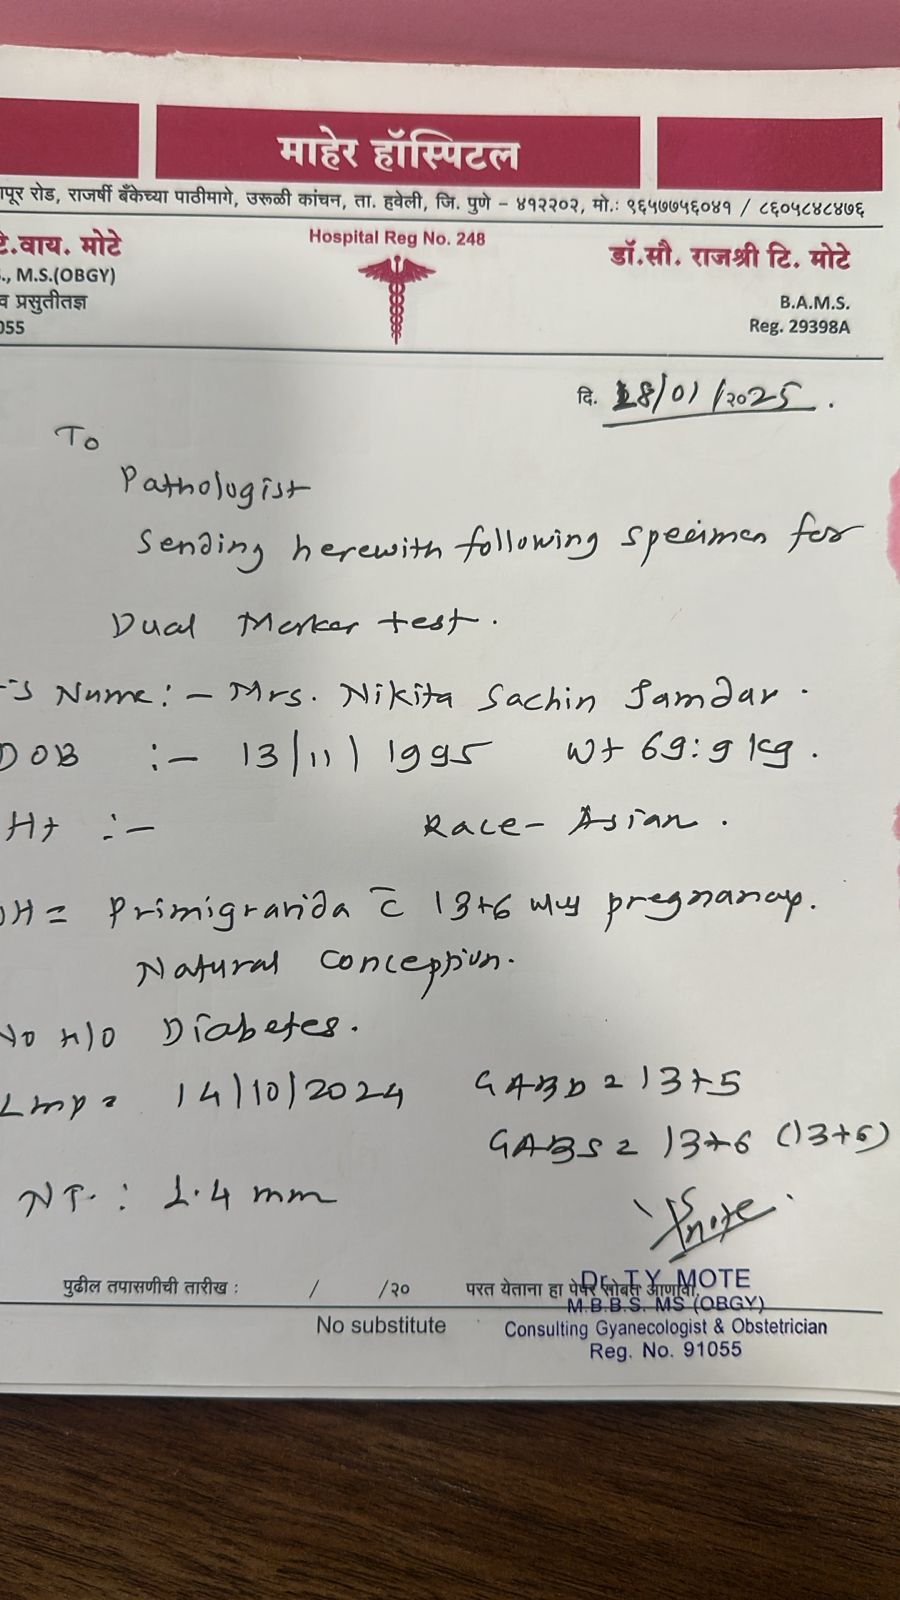 माहेर हॉस्पिटल
पूर रोड, राजर्षी बँकेच्या पाठीमागे, उरूळी कांचन, ता. हवेली, जि. पुणे - ४१२२०२, मो.: ९६५७७५६०४१ / ८६०५८४८४७६
टे.वाय. मोटे
Hospital Reg No. 248
डॉ.सौ. राजश्री टि. मोटे
., M.S.(OBGY)
B.A.M.S.
व प्रसुतीतज्ञ
055
Reg. 29398A
दि. 28/01/२०25.
To
Pathologist
Sending herewith following specimen for
Dual Marker test.
's Name:- Mrs. Nikita Sachin Jamdar.
DOB :- 13/11/1995 Wt 69.9 kg.
Ht :- Race- Asian.
OH = Primigravida c̄ 13+6 wks pregnancy.
Natural Conception.
No H/O Diabetes.
Lmp = 14/10/2024 GABD = 13+5
GABS = 13+6 (13+6)
NT. : 1.4 mm
पुढील तपासणीची तारीख : / /२०
परत येताना हा पेपर सोबत आणावा.
Dr. T.Y. MOTE
M.B.B.S. MS (OBGY)
No substitute
Consulting Gyanecologist & Obstetrician
Reg. No. 91055